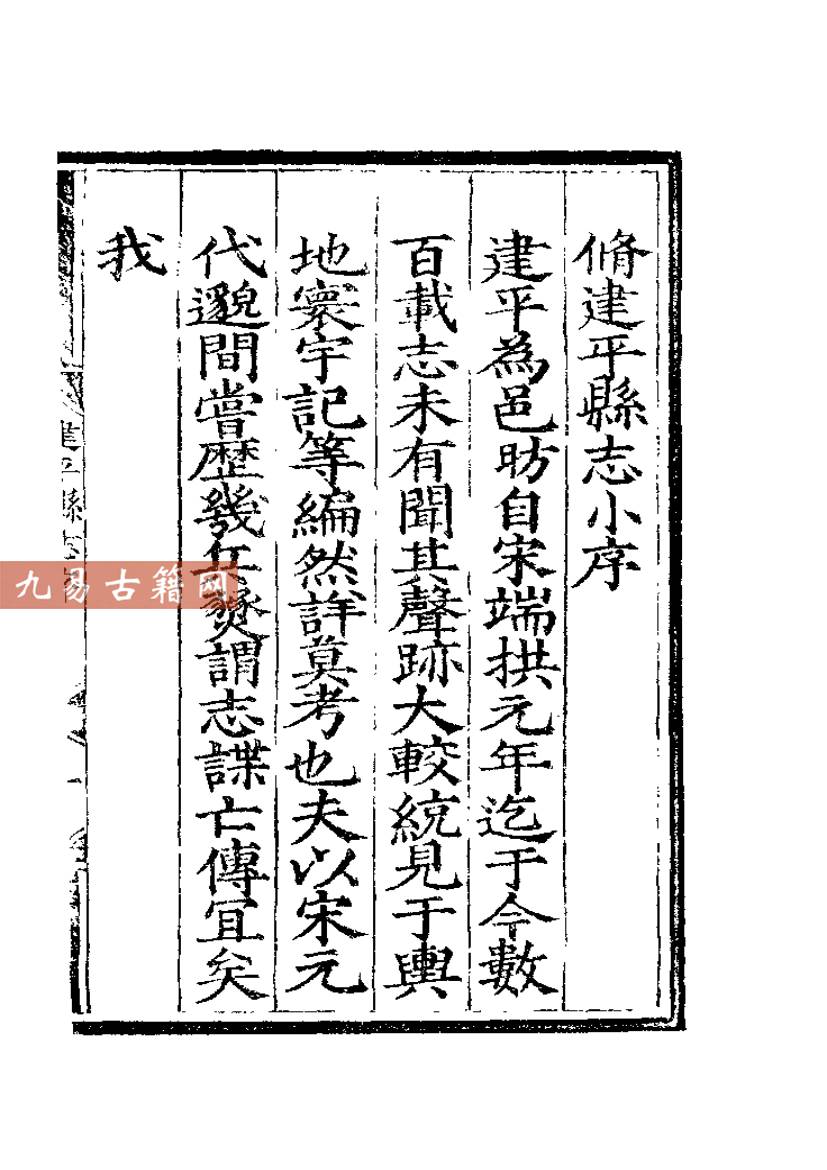 脩建平縣志小序
建平為邑昉自宋端拱元年迄于今數
百載志未有聞其聲跡大較統見于輿
地寰宇記等編然詳莫考也夫以宋元
代邈間嘗歷幾兵燹謂志諜亡傳宜矣
我
建平縣志
九易古籍网